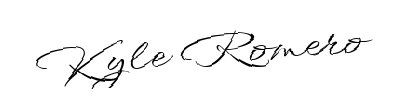 Kyle Romero